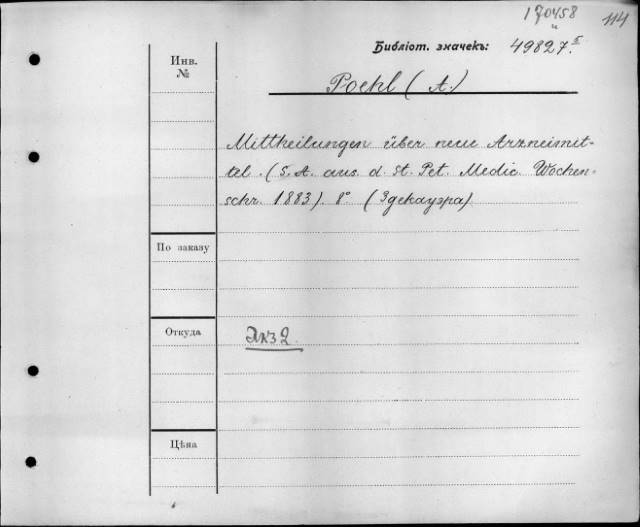 170458 114
"
Библіот. значекъ: 49827.⁵
Инв.
№
Poehl (A.)
Mittheilungen über neue Arzneimit-
tel. (S. A. aus. d. St. Pet. Medic. Wochen-
schr. 1883). 8° (Здекауэра)
По заказу
Откуда
Экз 2
Цѣна